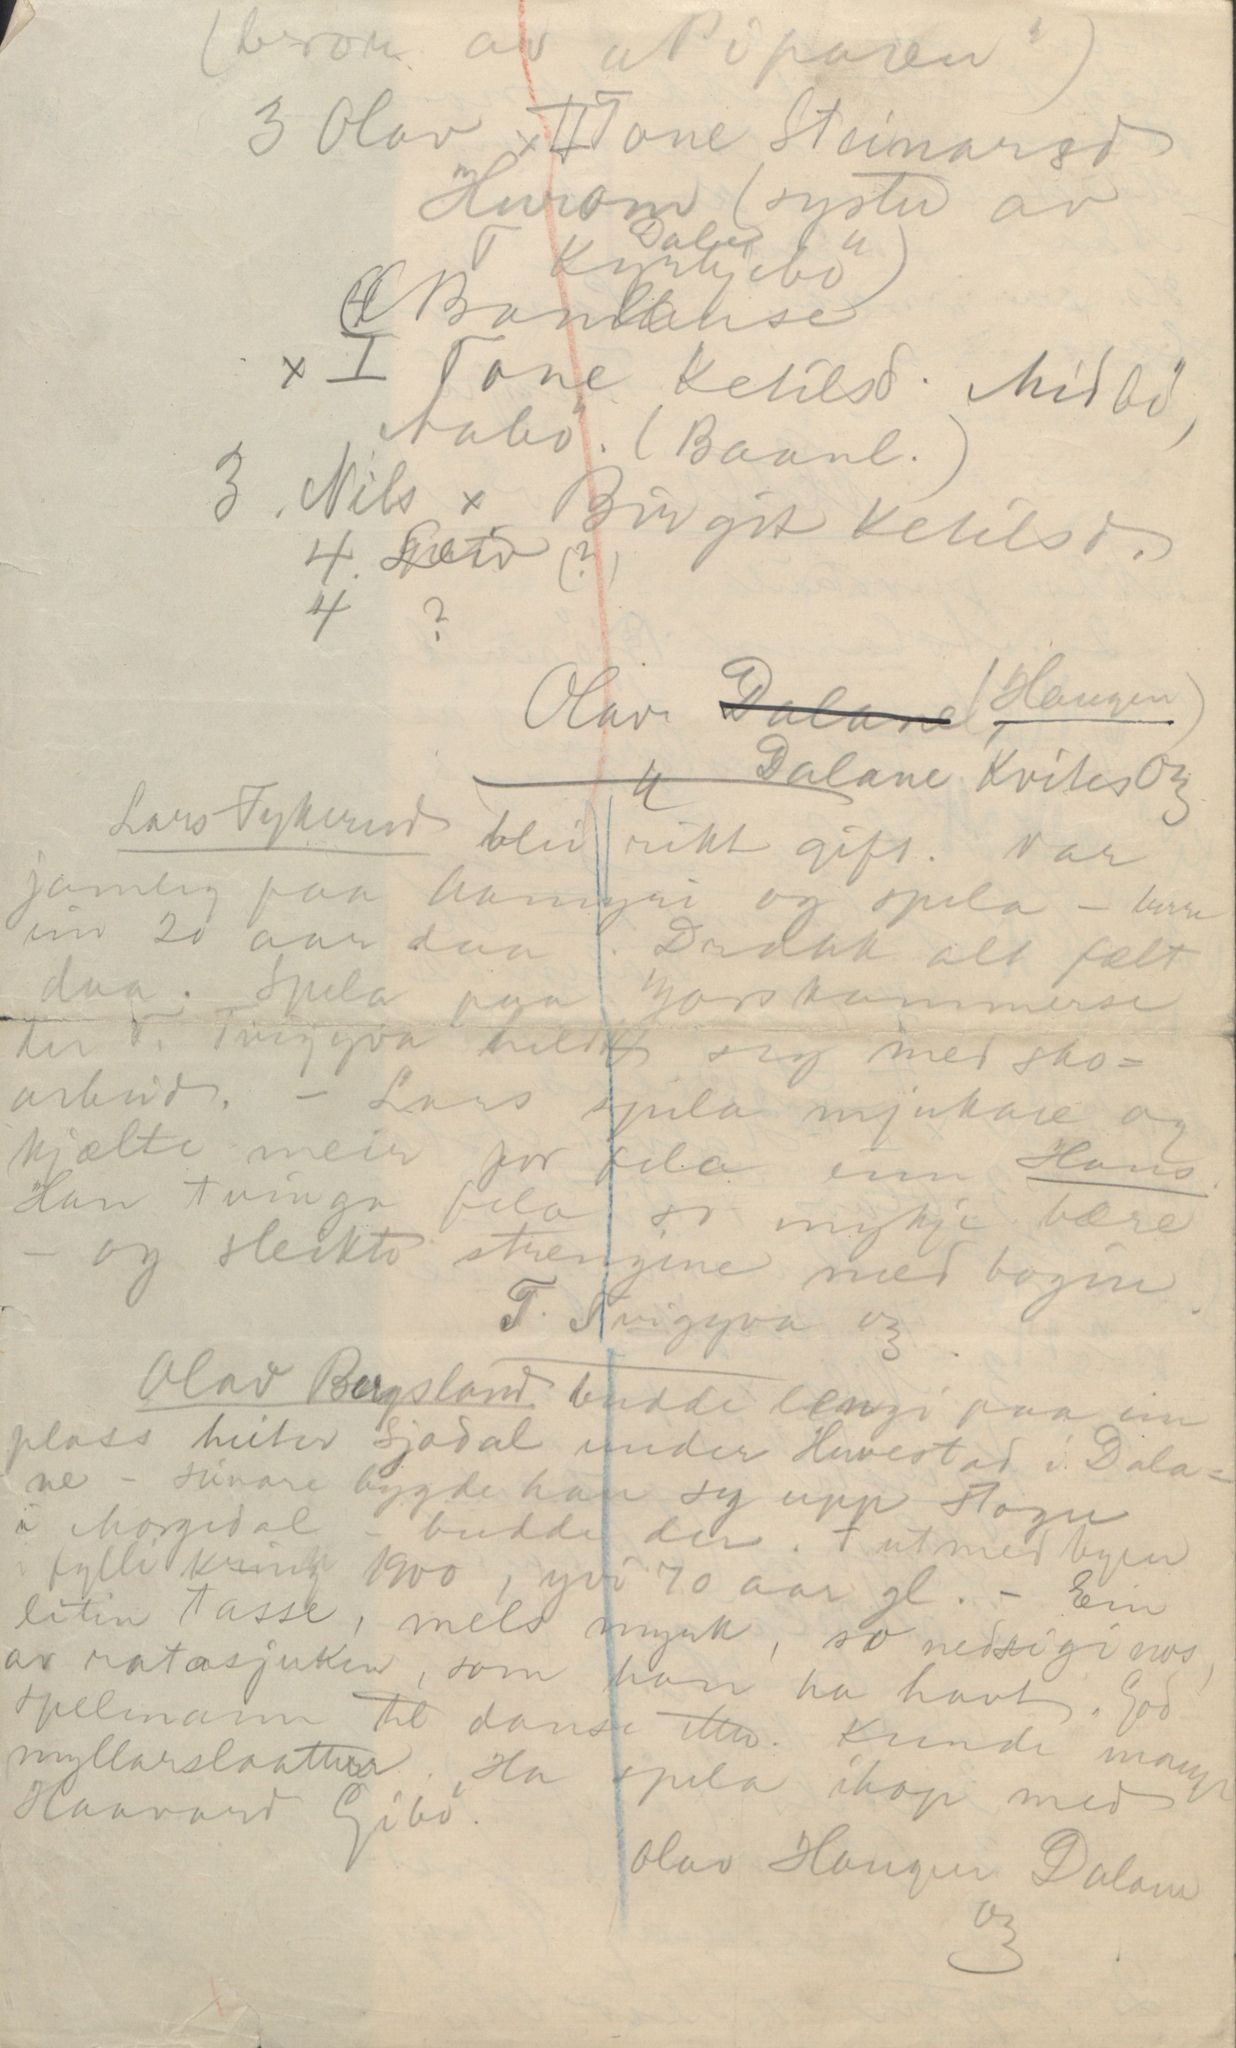 (beron av "Piparen")
3 Olav x II Tone Steinarsd
Hurom (syster av
T Kyrkjebö)
Dalen
x I Tone Ketilsd. Midbö,
Aabö. (Baanl.)
3. Nils x Birgit Ketilsd.
4. (?)
4 ?
Olav Dalane (Haugen)
Dalane Kvites
Lars Fykerud blei rikt gift. Var
jamleg paa Aamyri og spela - berre
ein 20 aar daa. Drakk alt fælt
daa. Spela paa Gorskammerse
der T. Tviggyva heldt seg med sko=
arbeid. - Lars spela mjukare og
kjælte meir for fela enn Hans.
Han tvinga fela so mykje bære
- og sleikte strengine med bogin.
T. Tviggyva
Olav Bergsland budde lengi paa ein
plass heiter Sjodal under Huvestad i Dala=
ne - sinare bygde han seg upp stogu
i Morgedal - budde der. † utmed byen
i fylli kring 1900, yvi 70 aar gl. - Ein
litin tasse, mels mjuk, so nedsigi nos,
av ratasjuken, som han ha havt. God
spelmann til danse etter. Kunde mange
myllarslaattar. Ha spela ihop med
Haavard Gibö.
Olav Haugen Dalane